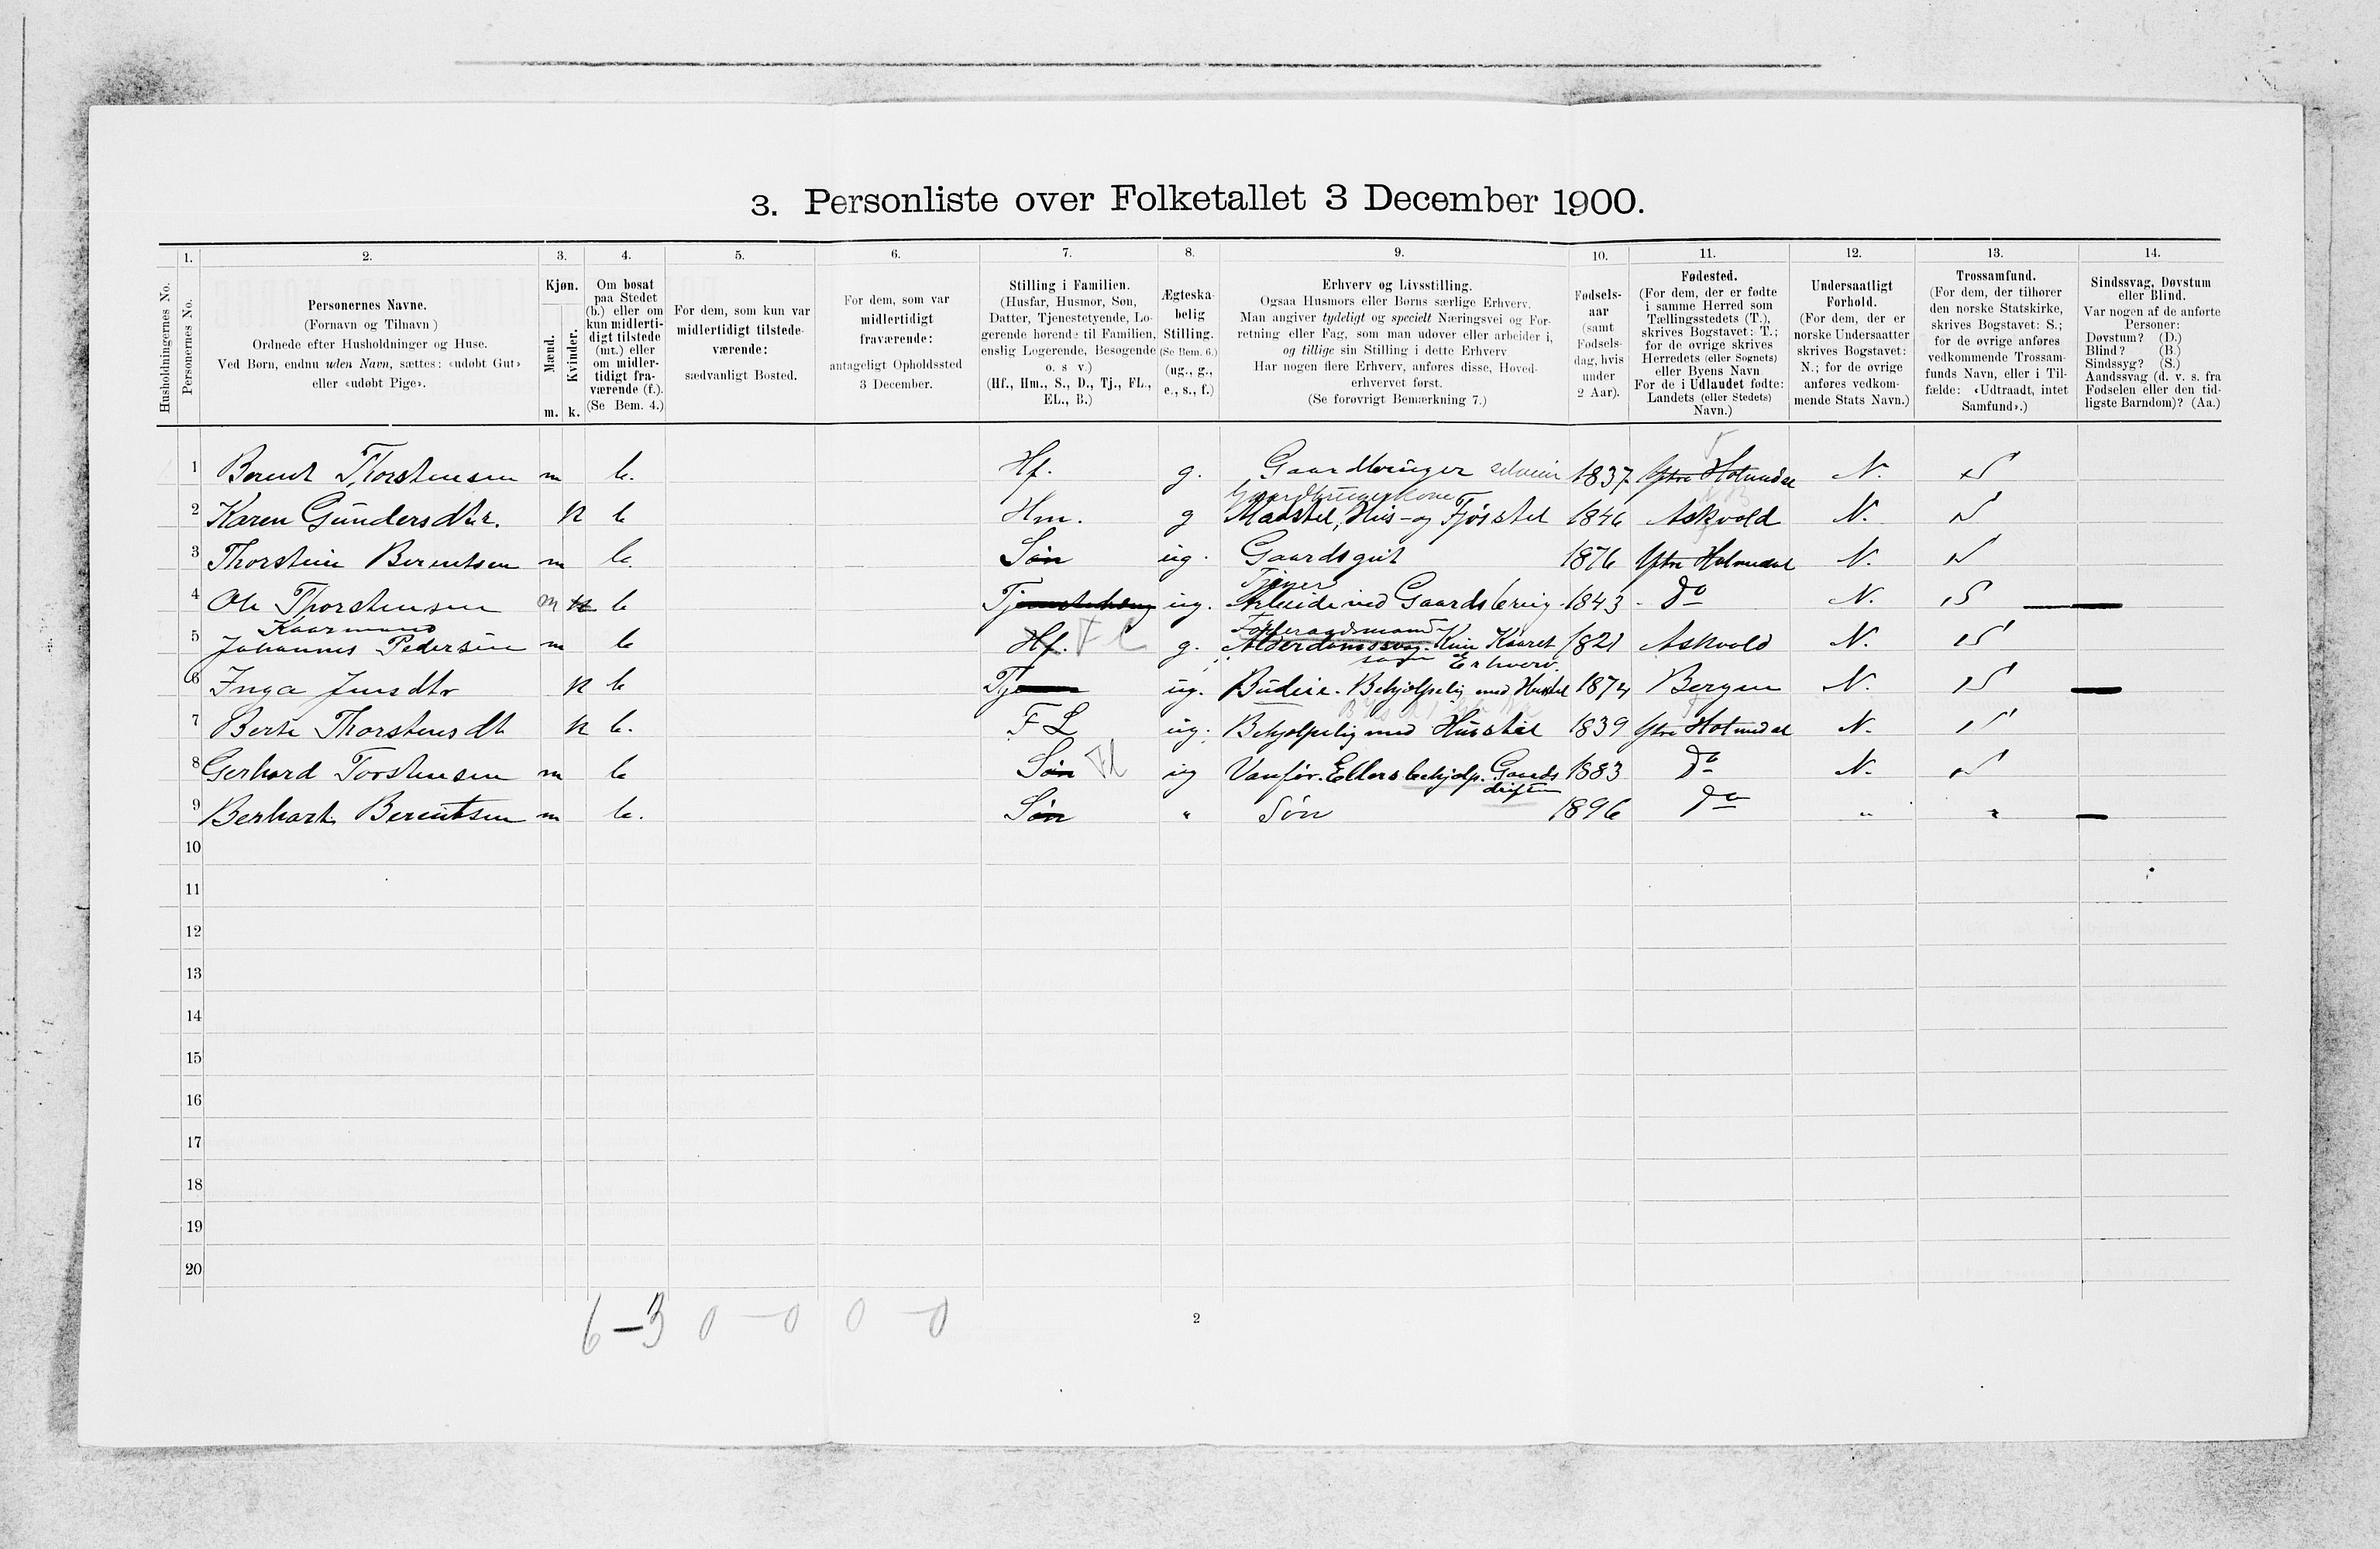 3. Personliste over Folketallet 3 December 1900.
1. 2. 3. 4. 5. 6. 7. 8. 9. 10. 11. 12. 13. 14.
Husholdningernes No.
Personernes No.
Personernes Navne.
(Fornavn og Tilnavn)
Ordnede efter Husholdninger og Huse.
Ved Børn, endnu uden Navn, sættes: «udøbt Gut»
eller «udøbt Pige».
Kjøn.
Mænd.
Kvinder.
m. k.
Om bosat
paa Stedet
(b.) eller om
kun midlerti-
digt tilstede
(mt.) eller
om midler-
tidigt fra-
værende (f.).
(Se Bem. 4.)
For dem, som kun var
midlertidigt tilstede-
værende:
sædvanligt Bosted.
For dem, som var
midlertidigt
fraværende:
antageligt Opholdssted
3 December.
Stilling i Familien.
(Husfar, Husmor, Søn,
Datter, Tjenestetyende, Lo-
gerende hørende til Familien,
enslig Logerende, Besøgende
o. s v.)
(Hf., Hm., S., D., Tj., FL.,
EL., B.)
Ægteska-
belig
Stilling.
(Se Bem. 6.)
(ug., g.,
e., s., f.)
Erhverv og Livsstilling.
Ogsaa Husmors eller Børns særlige Erhverv.
Man angiver tydeligt og specielt Næringsvei og For-
retning eller Fag, som man udøver eller arbeider i,
og tillige sin Stilling i dette Erhverv
Har nogen flere Erhverv, anføres disse, Hoved-
erhvervet først.
(Se forøvrigt Bemærkning 7.)
Fødsels-
aar
(samt
Fødsels-
dag, hvis
under
2 Aar).
Fødested.
(For dem, der er fødte
i samme Herred som
Tællingsstedets (T.),
skrives Bogstavet: T.;
for de øvrige skrives
Herredets (eller Sognets)
eller Byens Navn
For de i Udlandet fødte:
Landets (eller Stedets)
Navn.)
Undersaatligt
Forhold.
(For dem, der er
norske Undersaatter
skrives Bogstavet:
N.; for de øvrige
anføres vedkom-
mende Stats Navn.)
Trossamfund.
(For dem, der tilhører
den norske Statskirke,
skrives Bogstavet: S.;
for de øvrige anføres
vedkommende Trossam-
funds Navn, eller i Til-
fælde: «Udtraadt, intet
Samfund».)
Sindssvag, Døvstum
eller Blind.
Var nogen af de anførte
Personer:
Døvstum? (D.)
Blind? (B.)
Sindssyg? (S.)
Aandssvag (d. v. s. fra
Fødselen eller den tid-
ligste Barndom)? (Aa.)
1 Berent Thorstensen m b. Hf. g. Gaardbruger selveier 1837 Ytre Holmedal N. S
Gaardbrugerkone
2 Karen Gundersdtr. k b Hm. g Madstel, Hus- og Fjøsstel 1846 Askvold N. S
3 Thorstein Berentsen m b. Søn ug. Gaardsgut 1876 Ytre Holmedal N. S
Tjener
4 Ole Thorstensen m k b Tj ug. Arbeide ved Gaardsbrug 1843 do N. S
Kaarmand Føderaadsmand
5 Johannes Pedersen m b Hf. FL g. Kun Kaaret 1821 Askvold S
som Erhverv.
6 Inga Jensdtr k b Tj ug. Budeie. Behjælpelig med Husstel 1874 Bergen N. S
7 Berte Thorstensdt k b. FL ug. Behjælpelig med Husstel 1839 Ytre Holmedal N. S
8 Gerhard Torstensen m b Søn Fl ug Vanfør. Ellers behjælp. Gaards 1883 do N. S
driften
9 Berhart Berentsen m b. Søn " Søn 1896 do " "
10
11
12
13
14
15
16
17
18
19
20
6-3 0-0 0-0
2